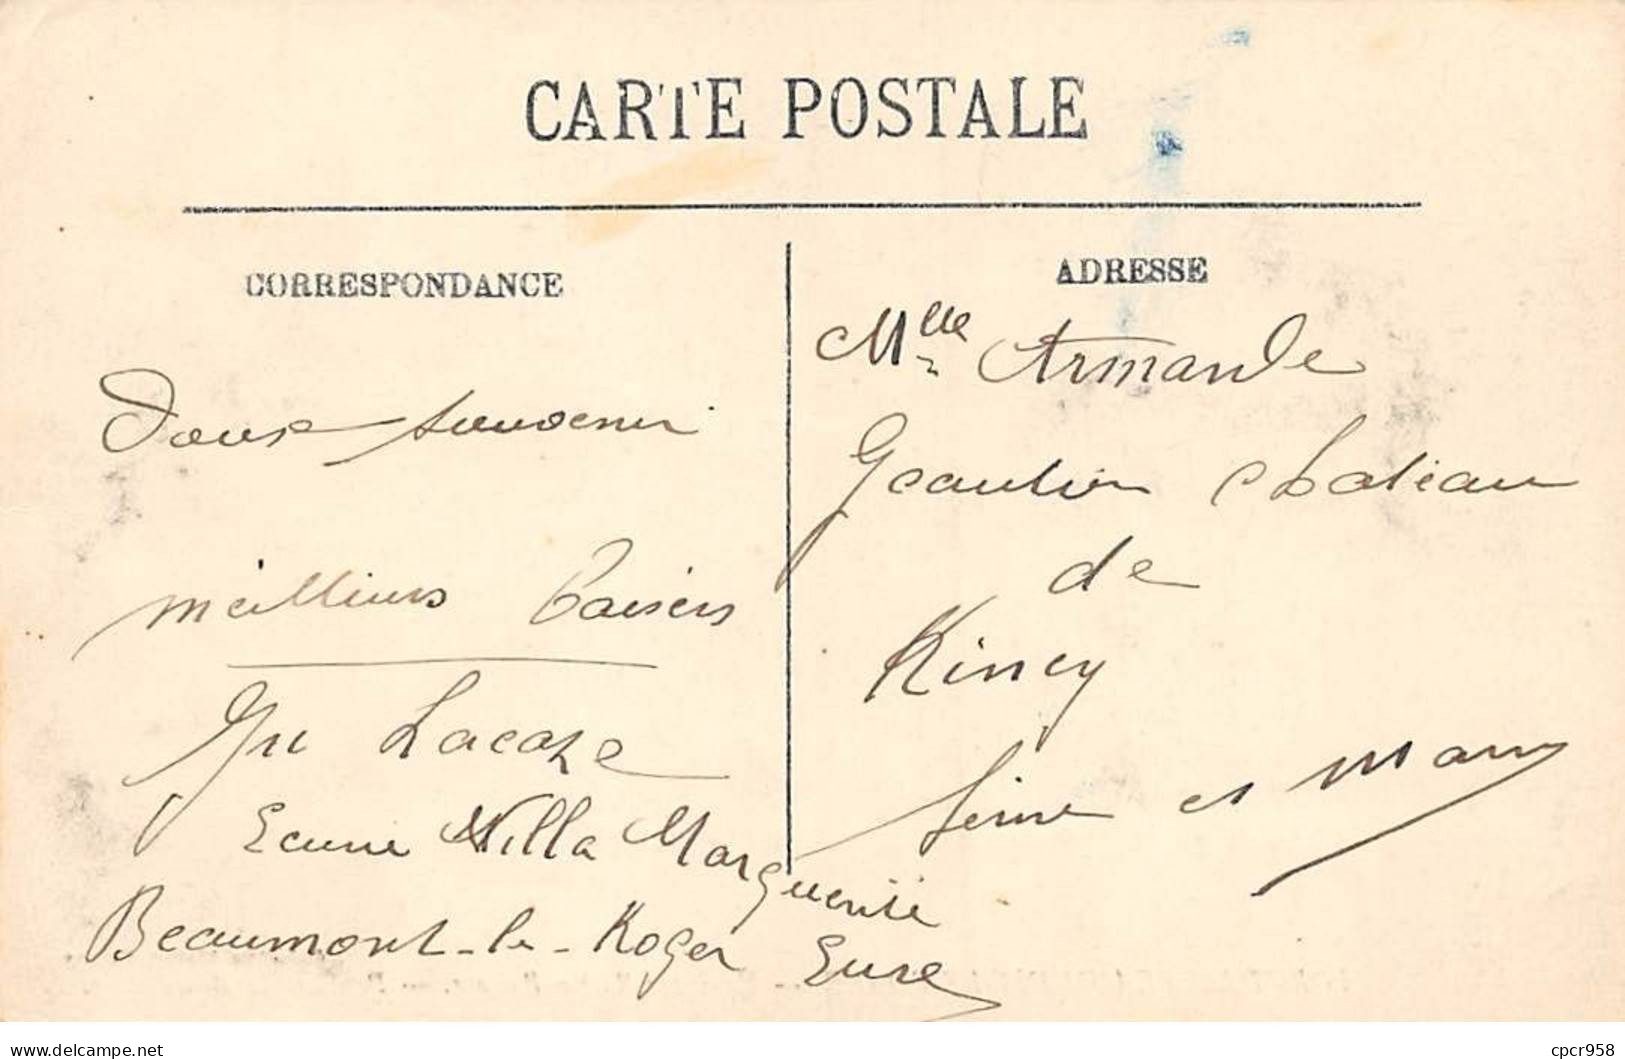 CARTE POSTALE
CORRESPONDANCE
Doux souvenir
meilleurs Baisers
Lacaze
Villa Marguerite
Beaumont-le-Roger Eure
ADRESSE
Mlle Armande
chateau
de
Kincy
Seine et Marne
delcampe.net
cpcr958